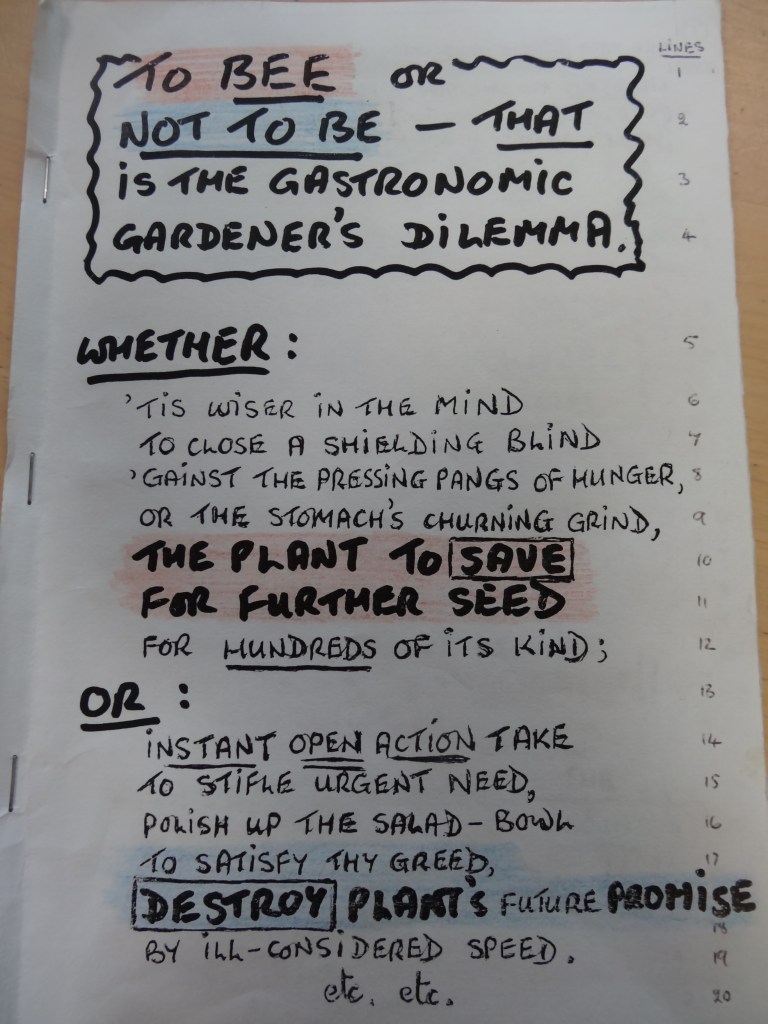 LINES
TO BEE OR 1
NOT TO BE – THAT 2
is THE GASTRONOMIC 3
GARDENER'S DILEMMA. 4
WHETHER: 5
'TIS WISER IN THE MIND 6
TO CLOSE A SHIELDING BLIND 7
'GAINST THE PRESSING PANGS OF HUNGER, 8
OR THE STOMACH'S CHURNING GRIND, 9
THE PLANT TO SAVE 10
FOR FURTHER SEED 11
FOR HUNDREDS OF ITS KIND; 12
OR: 13
INSTANT OPEN ACTION TAKE 14
TO STIFLE URGENT NEED, 15
POLISH UP THE SALAD-BOWL 16
TO SATISFY THY GREED, 17
DESTROY PLANT'S FUTURE PROMISE 18
BY ILL-CONSIDERED SPEED. 19
etc. etc. 20